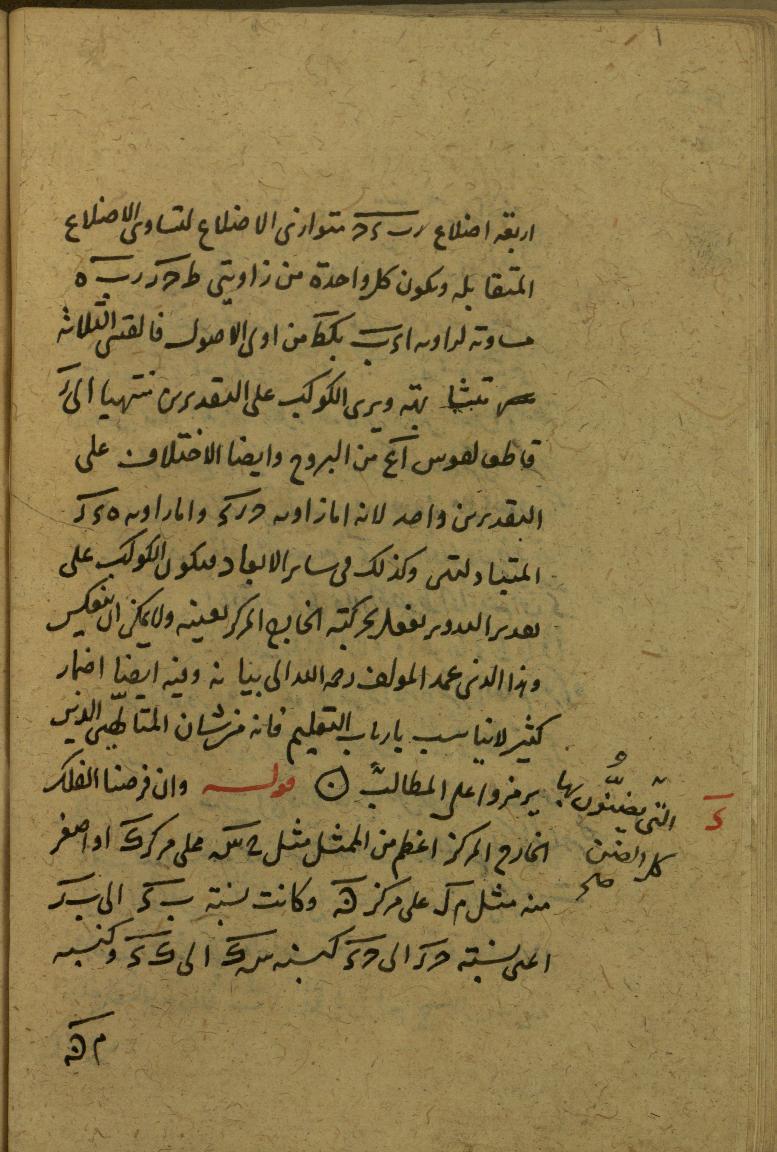 اربعة اضلاع رب ءح متوازى الاضلاع لتساوى الاضلاع
المتقابله ويكون كل واحدة من زاويتى ط ح ر ر ب ه
مساوية لزاويه ا ء ب بكط من اولى الاصول فالقسى الثلاثة
متشابهة ويرى الكوكب على التقديرين منتهيا الى ر
قاطعا لقوس آع من البروج وايضا الاختلاف على
التقديرين واحد لانه اما زاويه ح ر ء واما زاويه ه ء ر
المتبادلتين وكذلك فى ساير الابعاد فيكون الكوكب على
تقدير التدوير يفعل بحركته الخارج المركز بعينه ولا يمكن ان ينعكس
وهذا الذى عمد المولف رحمه الله الى بيانه وفيه ايضا اضمار
كثير لا يناسب بارباب التعليم فانه من شان المتالهين الذين
يرمزوا على المطالب ۞ قوله وان فرضنا الفلك
التى يضنون بها
كل الضن
صح
ء
الخارج المركز اعظم من الممثل مثل ح س على مركز ك او اصغر
منه مثل م ل على مركز ن وكانت نسبة ب ء الى ب ر
اعنى نسبة ح ر الى ح ء كنسبة س ك الى ك ء وكنسبه
م ن